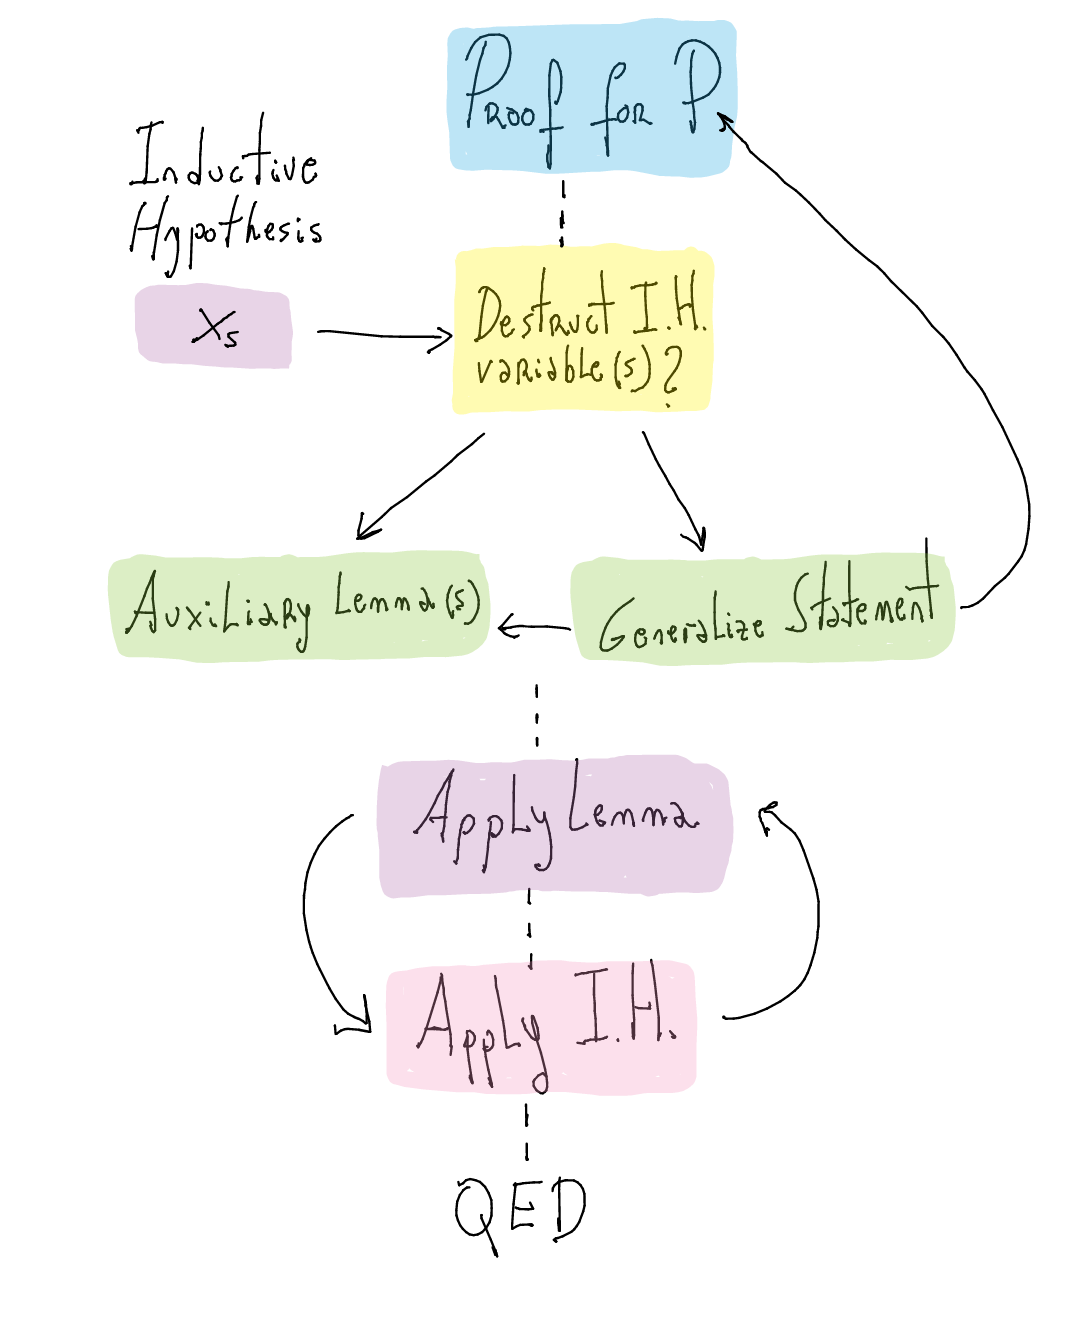 Proof for P
Inductive
Hypothesis
Xs
Destruct I.H.
variable(s)?
Auxiliary Lemma(s)
Generalize Statement
Apply Lemma
Apply I.H.
QED